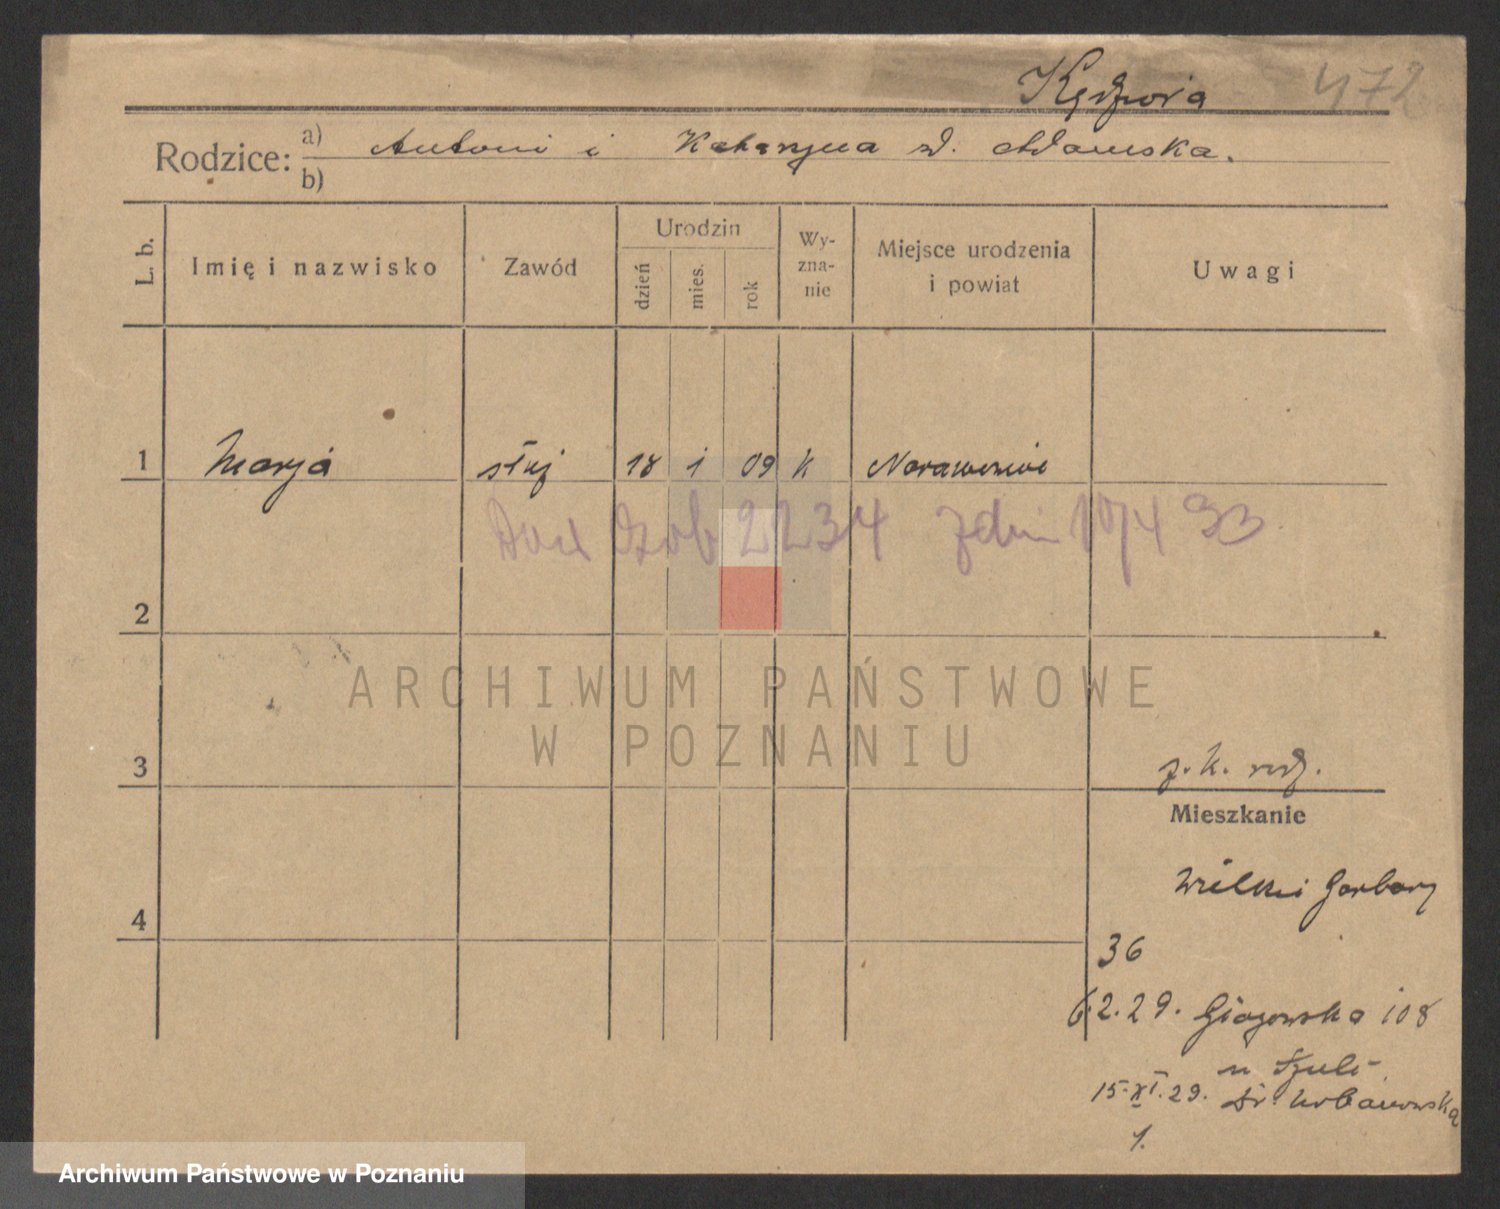 Kędziora 472
Rodzice: a) Antoni i Katarzyna z d. Adamska.
b)
L. b. Imię i nazwisko Zawód Urodzin dzień mies. rok Wyznanie Miejsce urodzenia i powiat Uwagi
1 Marja służ 18 1 09 k
Dow 2234 10/4 33
2
ARCHIWUM PAŃSTWOWE
W POZNANIU
3
Mieszkanie
Wielkie Garbary
4
36
6.2.29. Głogowska 108
u Szulc
15.XI.29. Dr. Urbanowska
1.
Archiwum Państwowe w Poznaniu